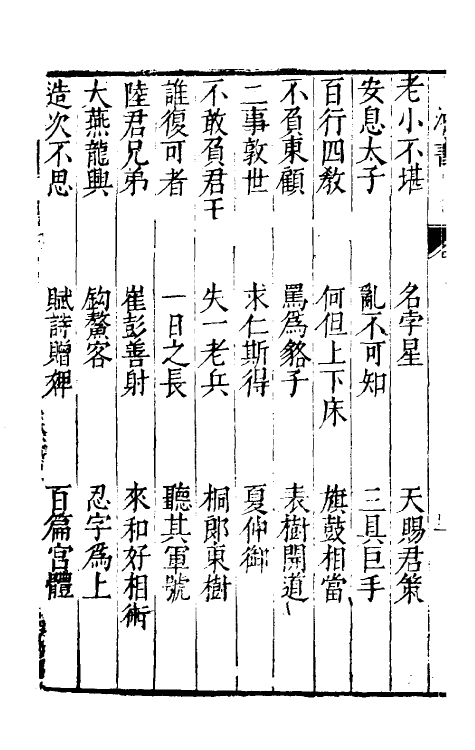 老小不堪　名孛星　天賜君策
安息太子　亂不可知　三具巨手
百行四教　何但上下床　旗鼓相當
不負東顧　罵為貉子　表樹開道
二事敦世　求仁斯得　夏仲御
不敢負君王　失一老兵　桐郎東樹
誰復可者　一日之長　聽其軍號
陸君兄弟　崔彭善射　來和好相術
大燕龍興　釣鰲客　忍字為上
造次不思　賦詩贈裸　百篇宮體